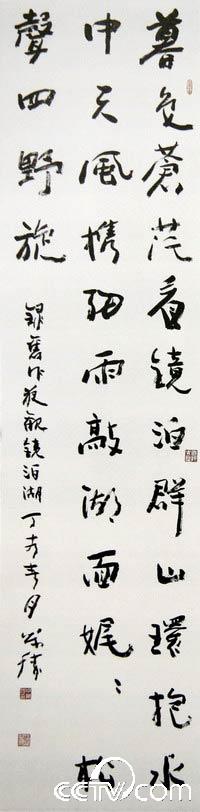 暮色蒼茫看鏡泊群山環抱水
中天風攜細雨敲湖面娓々松
聲四野旋
錄舊作夜觀鏡泊湖丁亥春月
cctv.com